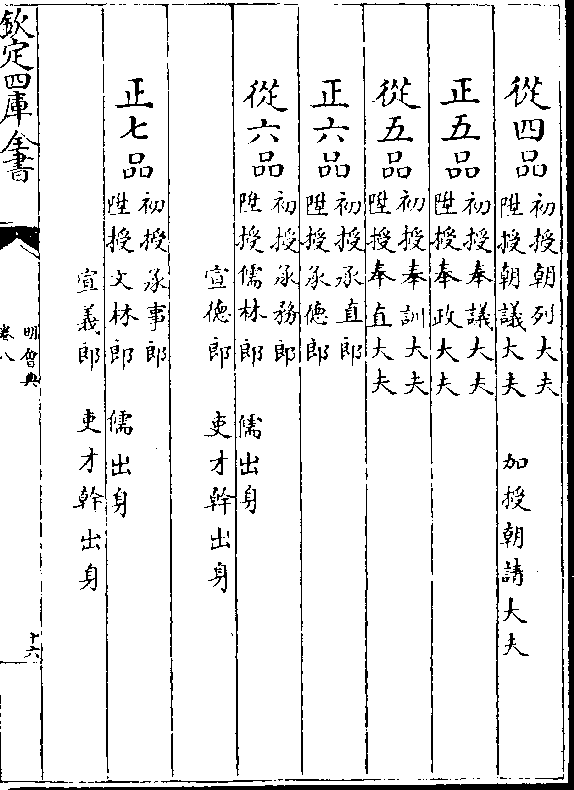 從四品
初授朝列大夫
陞授朝議大夫 加授朝請大夫
正五品
初授奉議大夫
陞授奉政大夫
從五品
初授奉訓大夫
陞授奉直大夫
正六品
初授承直郎
陞授承德郎
從六品
初授承務郎
陞授儒林郎 儒出身
宣德郎 吏才幹出身
正七品
初授承事郎
陞授文林郎 儒出身
宣義郎 吏才幹出身
欽定四庫全書
明會典
卷八
十六